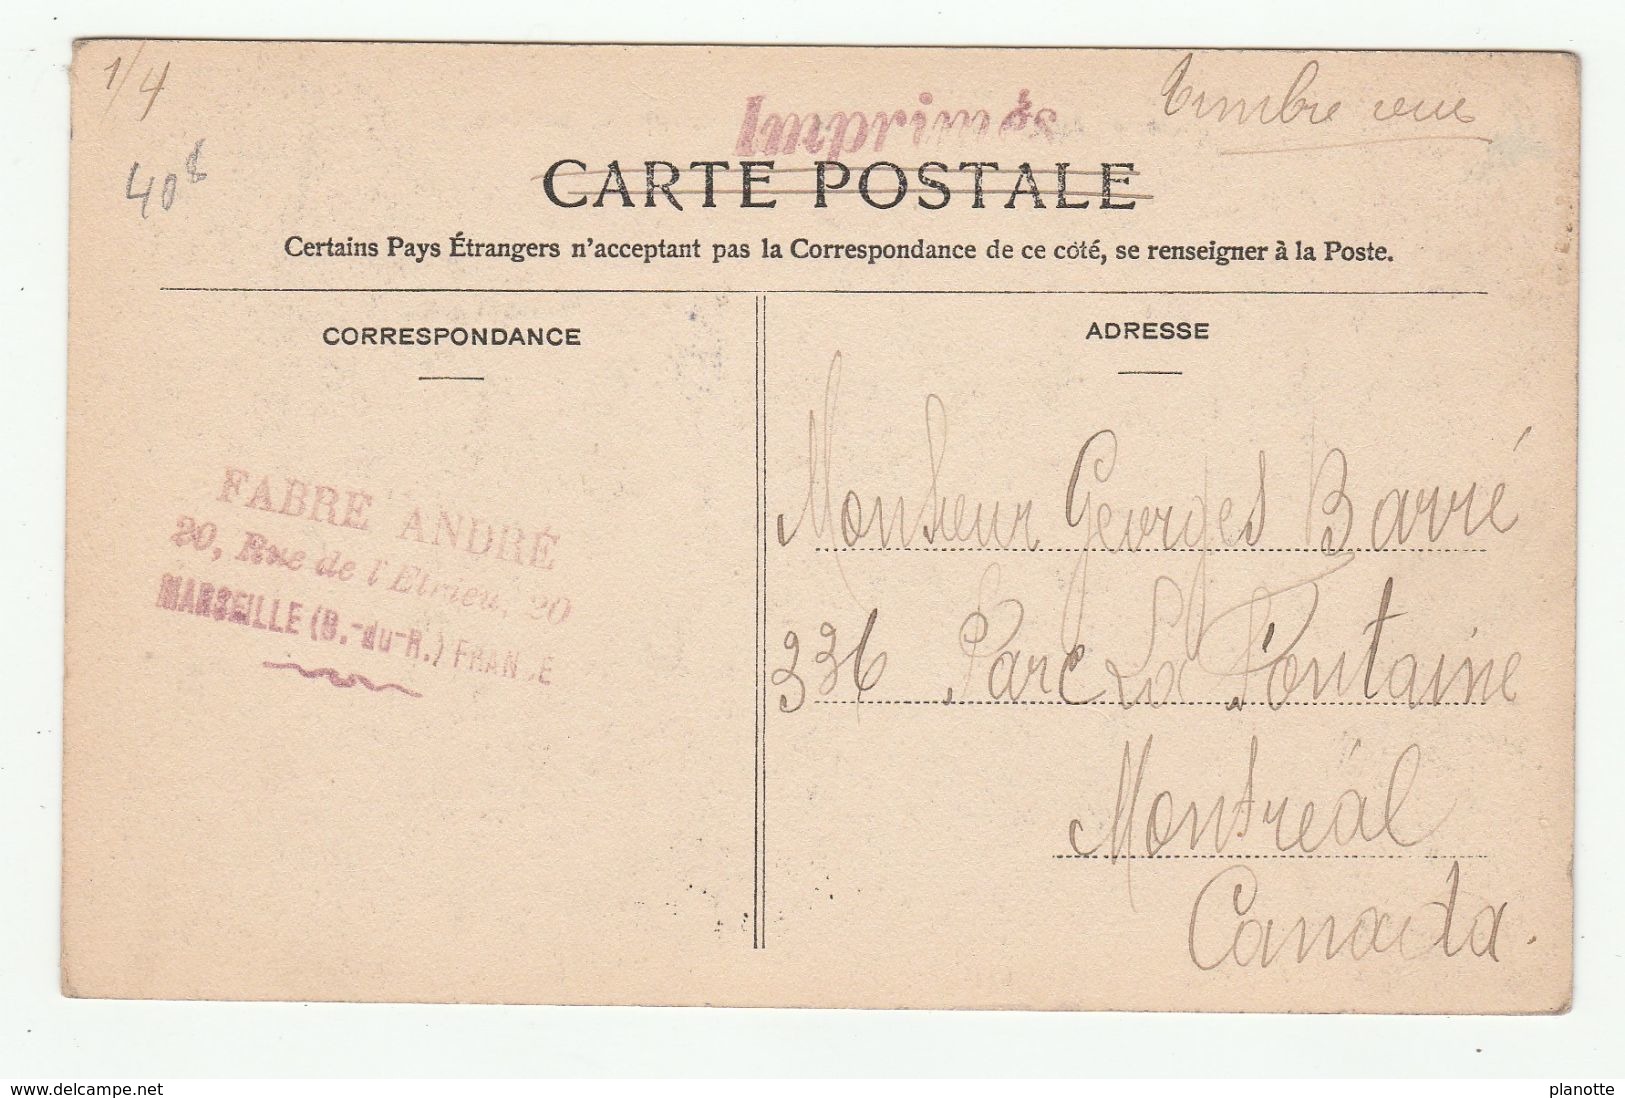 1/4
40
Imprimés
Timbre vue
CARTE POSTALE
Certains Pays Étrangers n'acceptant pas la Correspondance de ce côté, se renseigner à la Poste.
CORRESPONDANCE
ADRESSE
FABRE ANDRÉ
20, Rue de l'Etrieu, 20
MARSEILLE (B.-du-R.) FRANCE
Monsieur Georges Barré
336 Parc La Fontaine
Montréal
Canada.
www.delcampe.net
planotte